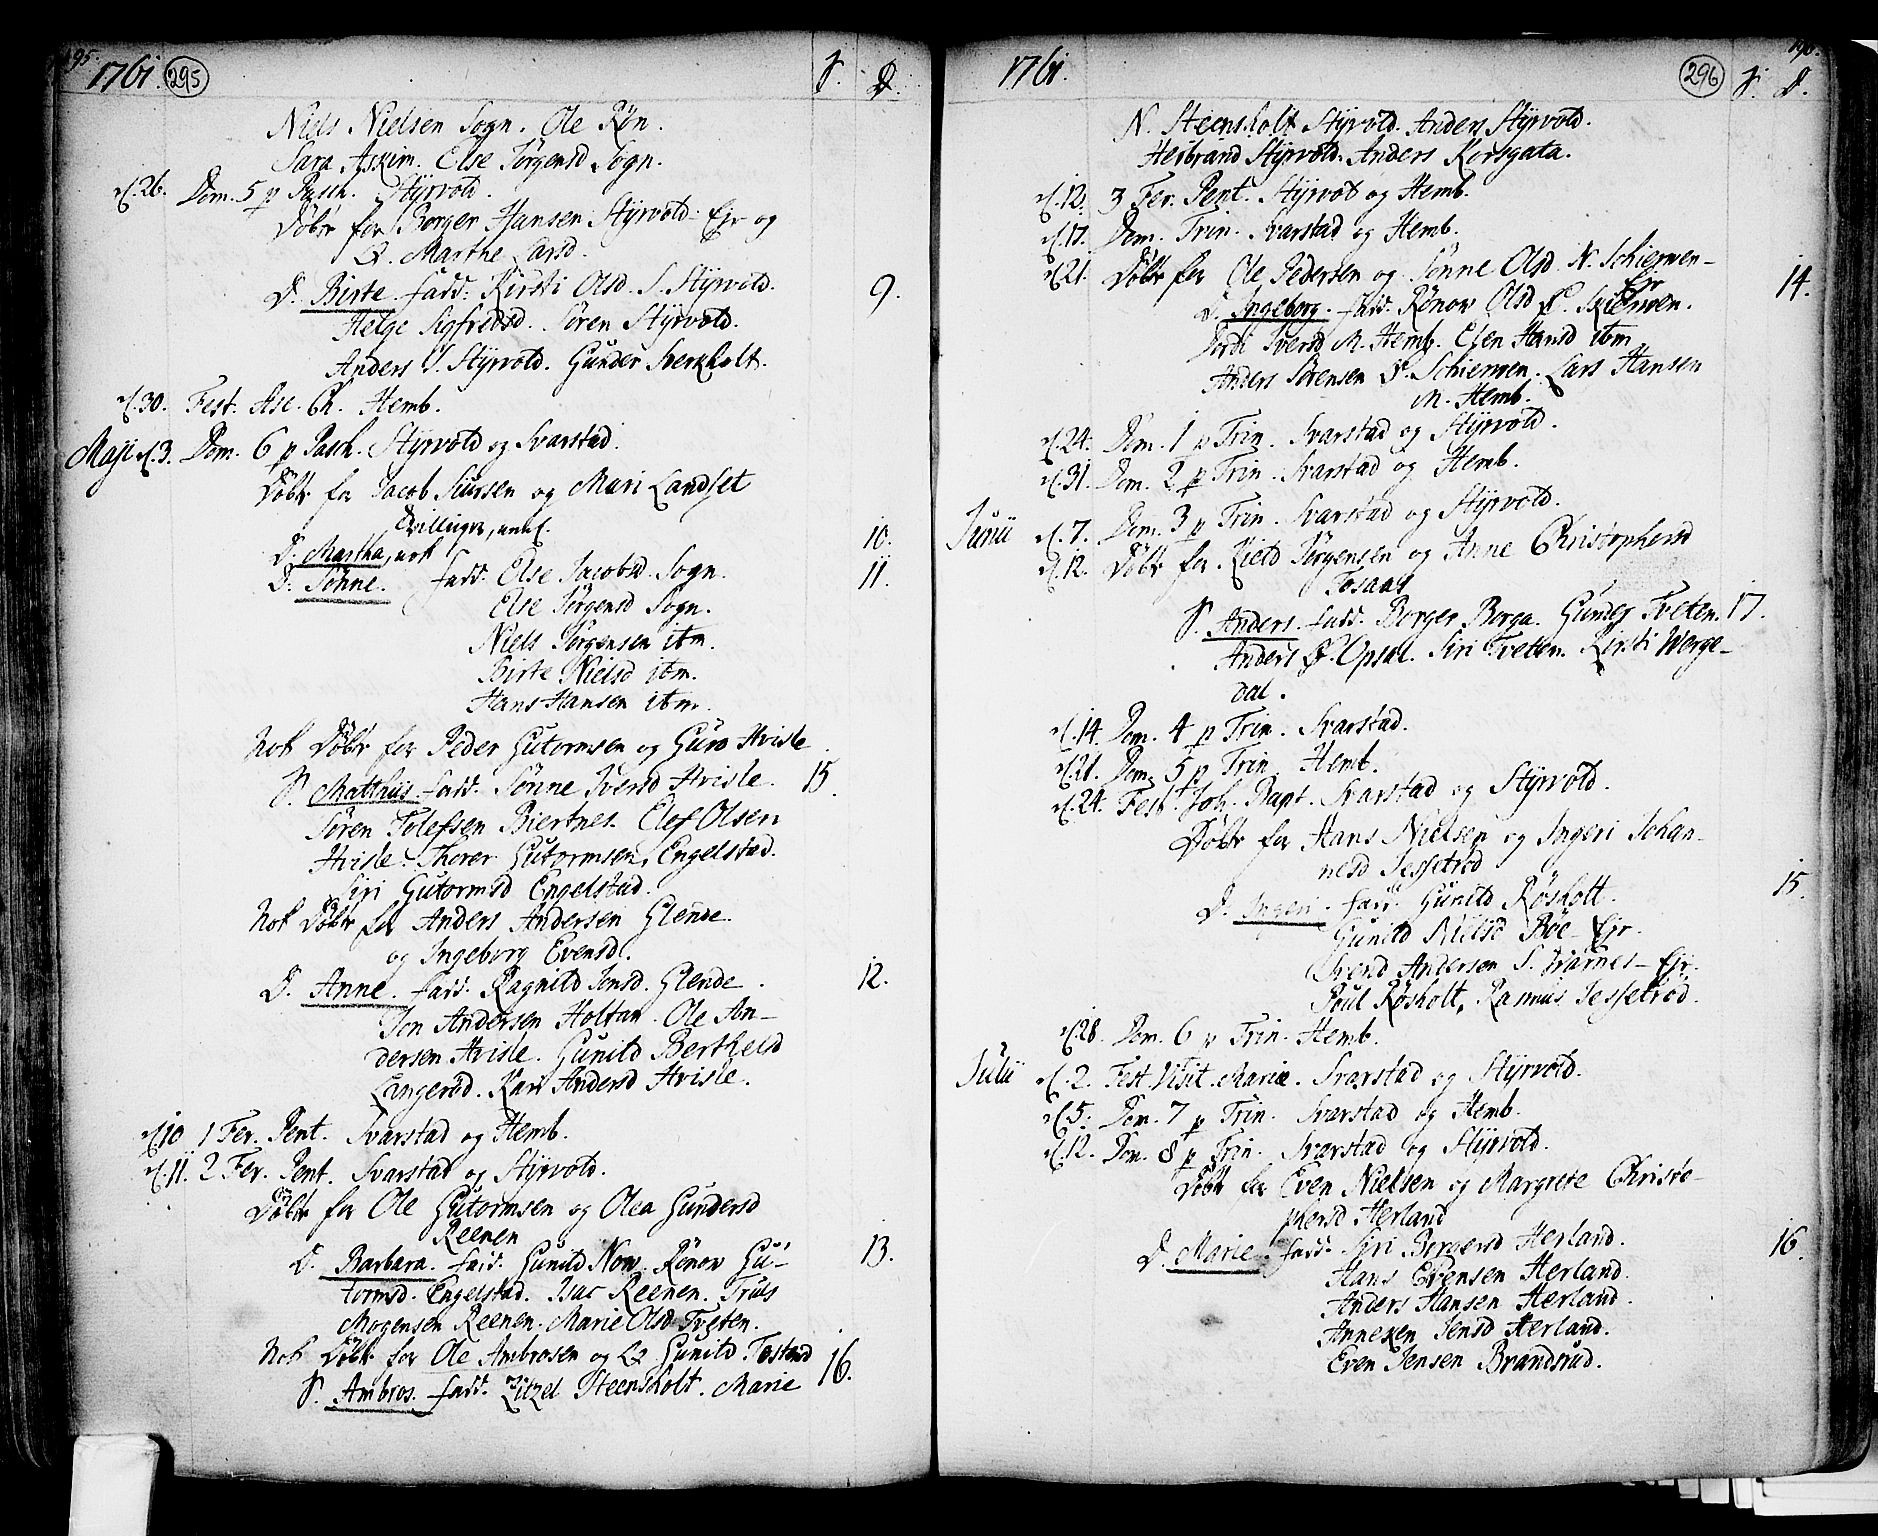 195. 1761. 295 S. D.
Niels Nielsen Sogn. Ole Røn.
Sara Askim. Else Jørgensd Sogn.
d. 26. Dom. 5 p Pasch. Styrvold.
Døbt for Borger Hansen Styrvold-Ejr og
Q. Marthe Larsd.
D. Birte fadd: Kirsti Olsd. S. Styrvold. 9.
Helge Sigfredsd. Sören Styrvold.
Anders S. Styrvold. Gunder Sverkholt.
d. 30. Fest. Asc. Ch. Hemb.
Maji d. 3. Dom. 6 p Pasch. Styrvold og Svarstad.
Døbt for Jacob Siursen og Mari Landset
Tvillinger, nml.
D. Martha, nok 10.
D. Sønne. fadd: Else Jacobsd. Sogn. 11.
Else Jørgensd Sogn.
Niels Jørgensen ibm.
Birte Nielsd ibm.
Hans Hansen ibm.
Nok Døbt for Peder Gutormsen og Guro Hvisle
S. Matthiis fadd: Sønne Iversd Hvisle. 15.
Sören Tolefsen Biertnes. Elef Olsen
Hvisle. Thorer Gutormsen, Engelstad.
Siri Gutormsd Engelstad.
Nok Døbt for Anders Andersen Glende
og Ingeborg Evensd.
D. Anne. fadd: Ragnild Jonsd. Glende. 12.
Jon Andersen Holtan. Ole An-
dersen Hvisle. Gunild Berthelsd
Langerud. Kari Andersd Hvisle.
d. 10 1 Fer. Pent. Svarstad og Hemb.
d. 11. 2 Fer. Pent. Svarstad og Styrvold.
Døbt for Ole Gutormsen og Olea Gundersd
Reenen
D. Barbara. fadd: Gunild Now. Rønov Gu- 13.
tormsd. Engelstad. Isac Reenen. Truls
Mogensen Reenen. Marie Olsd Tveten.
Nok Døbt for Ole Ambrosen og Q Gunild Testand
S. Ambros. fadd: Kitzel Steensholt. Marie 16.
1761. 296 196. S. D.
N. Steensholt Styrvold. Anders Styrvold.
Heibrand Styrvold. Anders Korsgata.
d. 12. 3 Fer. Pent. Styrvol og Hemb.
d. 17. Dom. Trin. Svarstad og Hemb.
d. 21. Døbt for Ole Pedersen og Sønne Olsd N. Schierven-
Ejr
D. Ingeborg. fadd: Rønov Olsd Skierven. 14.
Iversd M. Hemb. Elen Hansd ibm
Anders Sørensen Schierven. Lars Hansen
M. Hemb.
d. 24. Dom. 1 p Trin. Svarstad og Styrvold.
d. 31. Dom. 2 p Trin. Svarstad og Hemb.
Junii d. 7. Dom. 3 p Trin. Svarstad og Styrvold.
d. 12. Døbt for Kield Jørgensen og Anne Christophersd
Tosaas
S. Anders. fadd: Borger Borga. Gunder Tveten. 17.
Anders Opsal. Siri Tveten. Kirsti Worge-
dal.
d. 14. Dom. 4 p Trin. Svarstad.
d. 21. Dom. 5 p Trin. Hemb.
d. 24. Fest. Joh. Bapt. Svarstad og Styrvold.
Døbt for Hans Nielsen og Ingeri Johan-
nesd Jessetrød
D. Ingeri. fadd: Gunild Røsholt. 15.
Gunild Nielsd Bøe-Ejr.
Svend Andersen S. Ejr.
Poul Røsholt, Rasmus Jessetrød.
d. 28. Dom. 6 p Trin. Hemb.
Julii d. 2. Fest. Visit. Mariæ. Svarstad og Styrvold.
d. 5. Dom. 7 p Trin. Svarstad og Hemb.
d. 12. Dom. 8 p Trin. Svarstad og Styrvold.
Døbt for Even Nielsen og Margrete Christo-
phersd Herland
D. Marie. fadd: Siri Borgersd Herland. 16.
Hans Evensen Herland.
Anders Hansen Herland.
Anneken Jensd Herland.
Even Jensen Brandsrud.